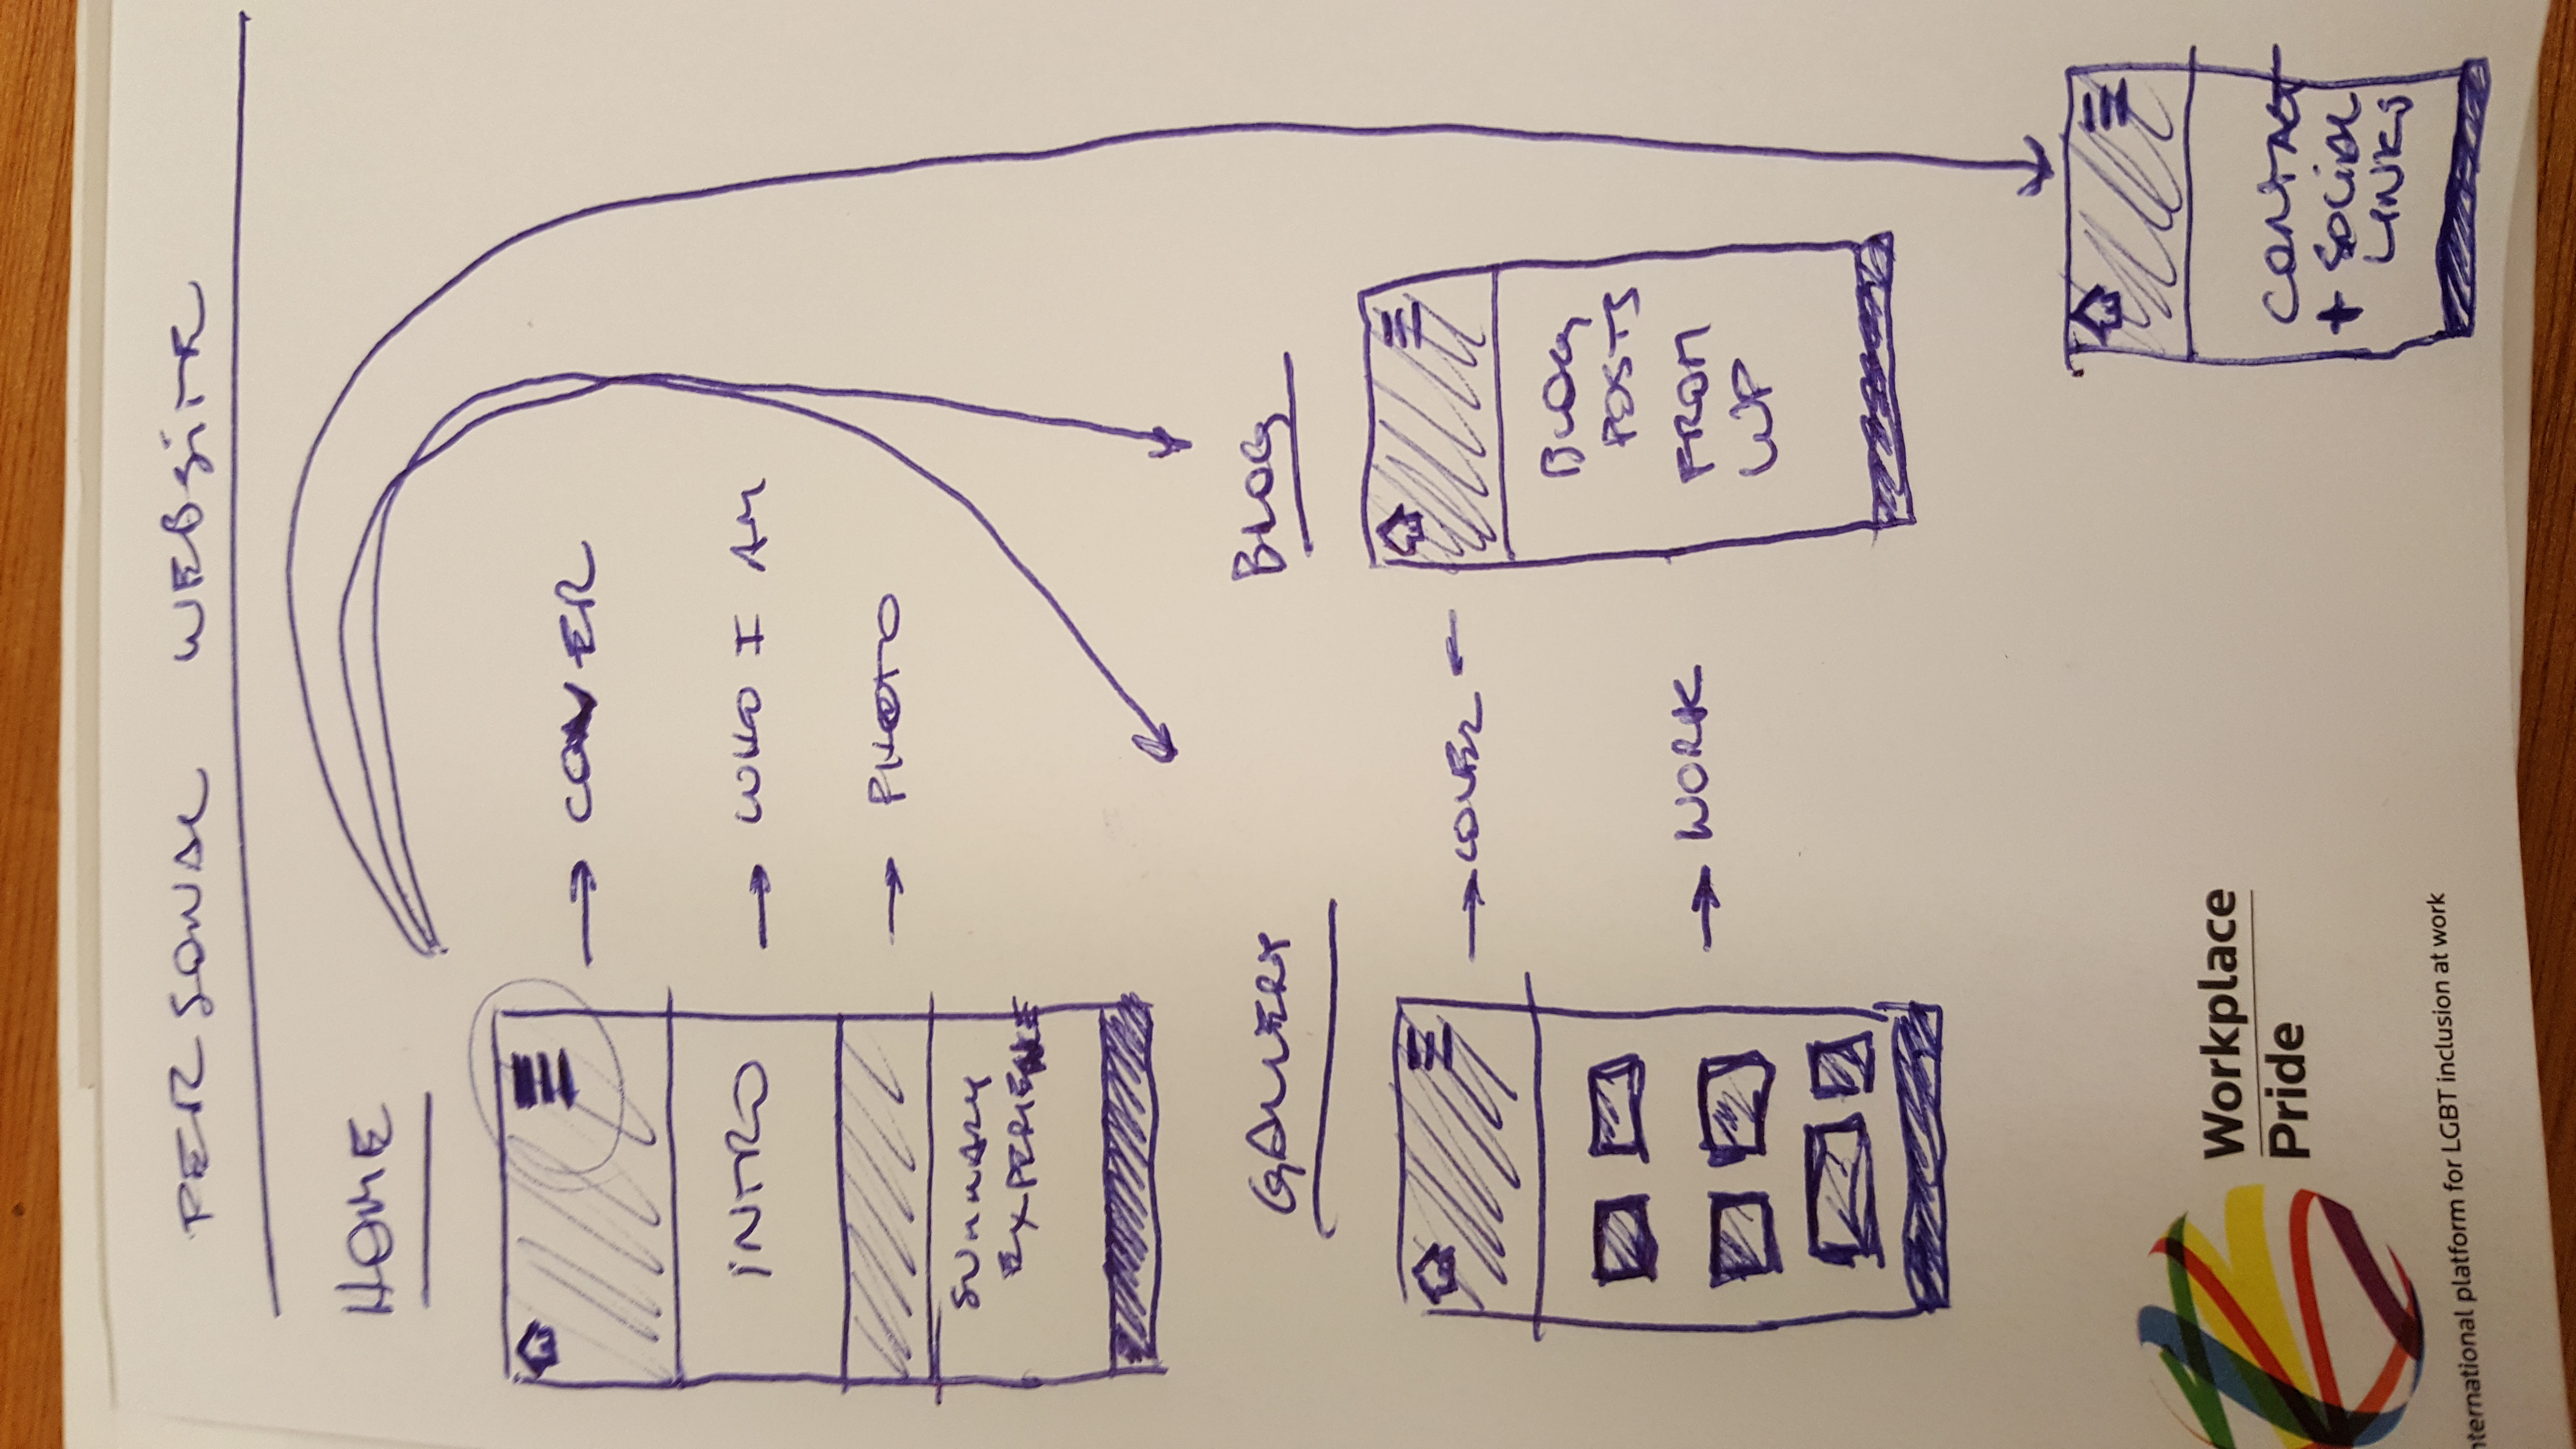 PERSONAL WEBSITE
HOME
COVER
INTRO
WHO I AM
PHOTO
SUMMARY
EXPERIENCE
GALLERY
BLOG
COVER
BLOG
POSTS
WORK
FROM
WP
CONTACT
+ SOCIAL
LINKS
Workplace
Pride
nternational platform for LGBT inclusion at work